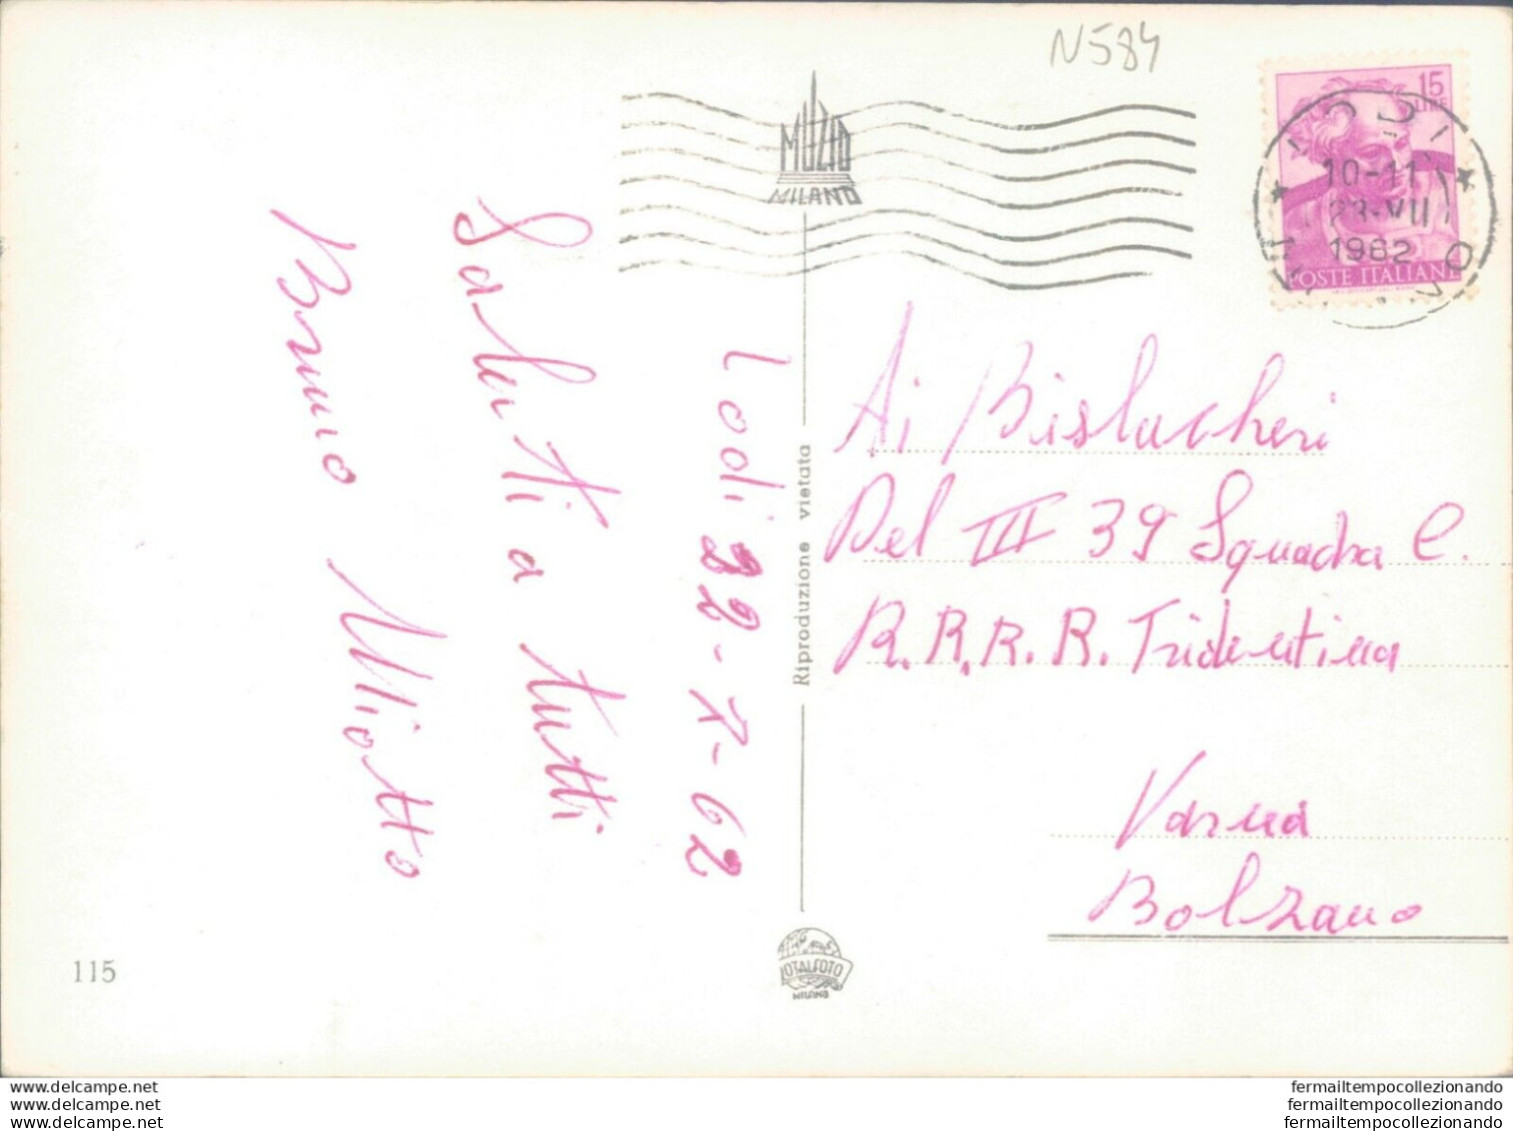 N584
MUZIO
MILANO
15
LIRE
10-11
23-VII
1962
POSTE ITALIANE
Lodi 22-7-62
Saluti a tutti
Bruno
Riproduzione vietata
Ai Bislacheri
Del III 39 Squadra C.
R.R.R.R. Tridentina
Varna
Bolzano
TOTALFOTO
MILANO
115
www.delcampe.net
www.delcampe.net
www.delcampe.net
fermailtempocollezionando
fermailtempocollezionando
fermailtempocollezionando